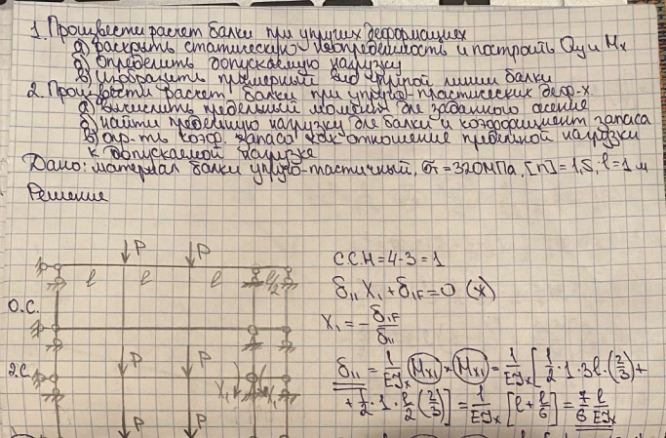 1. Произвести расчет балки при упругих деформациях
а) раскрыть статическую неопределимость и построить Qy и Mx
б) определить допускаемую нагрузку
в) изобразить примерный вид упругой линии балки
2. Произвести расчет балки при упруго-пластических деф-х
а) вычислить предельный момент для заданного сечения
б) найти предельную нагрузку для балки и коэффициент запаса
в) опр-ть коэф. запаса как отношение предельной нагрузки
к допускаемой нагрузке
Дано: материал балки упруго-пластичный, σт = 320 МПа, [n] = 1,5, l = 1 м
Решение
P P
l l l l/2
О.С.
P P
Э.С.
X1
С.С.Н = 4-3 = 1
δ11 X1 + δ1F = 0 (*)
X1 = - δ1F/δ11
δ11 = 1/EJx (Mx1) × (Mx1) = 1/EJx [1/2 · 1 · 3l · (2/3) +
+ 1/2 · 1 · l/2 (2/3)] = 1/EJx [l + l/6] = 7/6 l/EJx